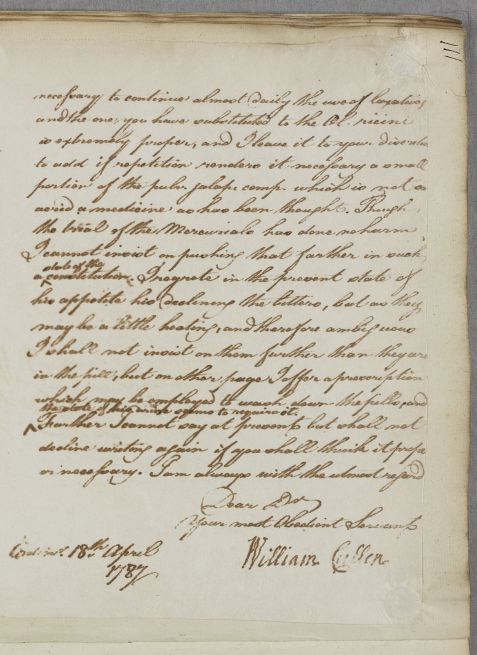 111
necessary to continue almost daily the use of laxatives
and the one you have substituted to the Ol. ricini
is extremely proper, and I leave it to your discretion
to add if repetition renders it necessary a small
portion of the pulv. jalap. comp. which is not as
acrid a medicine as has been thought. Though
the trial of the Mercurials has done no harm
I cannot insist on pushing that farther in such
state of the
a constitution. I regrete in the present state of
his appetite his declining the bitters, but as they
may be a little heating, and therefore ambiguous
I shall not insist on them further than they are
in the pill, but on other page I offer a prescription
which may be employed to wash down the pills, and
the state of his urine seems to require it.
Further I cannot say at present but shall not
decline writing again if you shall think it proper
or necessary. I am always with the utmost regard
Dear Dr
Your most Obedient Servant
Edinr. 18th April
1787
William Cullen